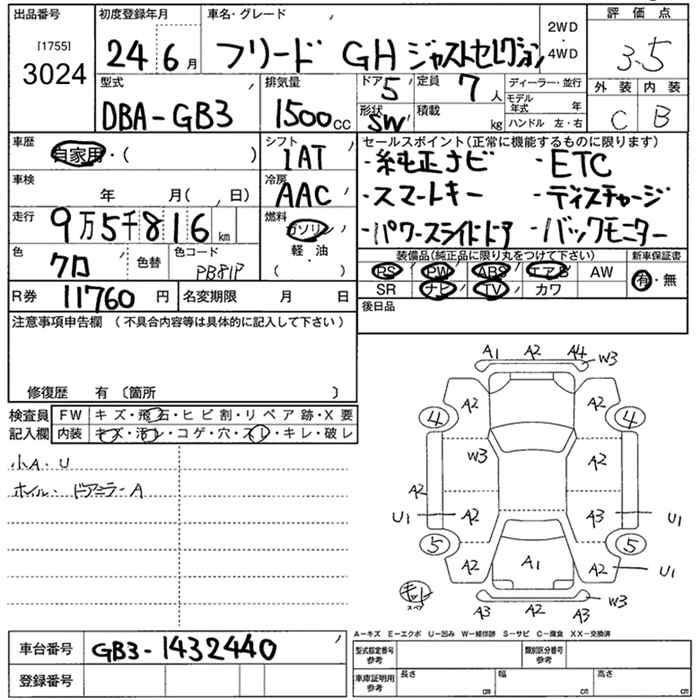 出品番号 初度登録年月 車名・グレード 2WD・4WD 評価点
[1755]
3024 24年6月 フリード GH ジャストセレクション 3.5
型式 排気量 ドア 5 定員 7人 ディーラー・並行 外装 内装
DBA-GB3 1500cc 形状 SW 積載 kg モデル年式 年 ハンドル 左・右 C B
車歴 自家用・( ) シフト IAT セールスポイント(正常に機能するものに限ります)
・純正ナビ ・ETC
車検 年 月( 、 日) 冷房 AAC ・スマートキー ・ディスチャージ
走行 9万5千816km 燃料 ガソリン・軽油( ) ・パワースライドドア ・バックモニター
色 クロ 色替 色コード PB81P 装備品(純正品に限り丸をつけて下さい) 新車保証書
PS PW ABS エアB AW 有・無
R券 11760円 名変期限 月 日 SR ナビ TV カワ
注意事項申告欄 (不具合内容等は具体的に記入して下さい) 後日品
修復歴 有 〔箇所 〕
検査員 FW キズ・飛石・ヒビ割・リペア跡・X要
記入欄 内装 キズ・汚レ・コゲ・穴・スレ・キレ・破レ
小A・U
ホイル・ドアミラーA
A1 A2 A4 W3
A2 A2
4 4
W3 A2
A2
U1 A2 A3 U1
5 5
A2 A1 A2 U1
スペア
A3 A2 A3 W3
A-キズ E-エクボ U-凹み W-補修跡 S-サビ C-腐食 XX-交換済
車台番号 GB3-1432440 型式指定番号 参考 類別区分番号 参考
登録番号 車庫証明用 参考 長さ cm 幅 cm 高さ cm